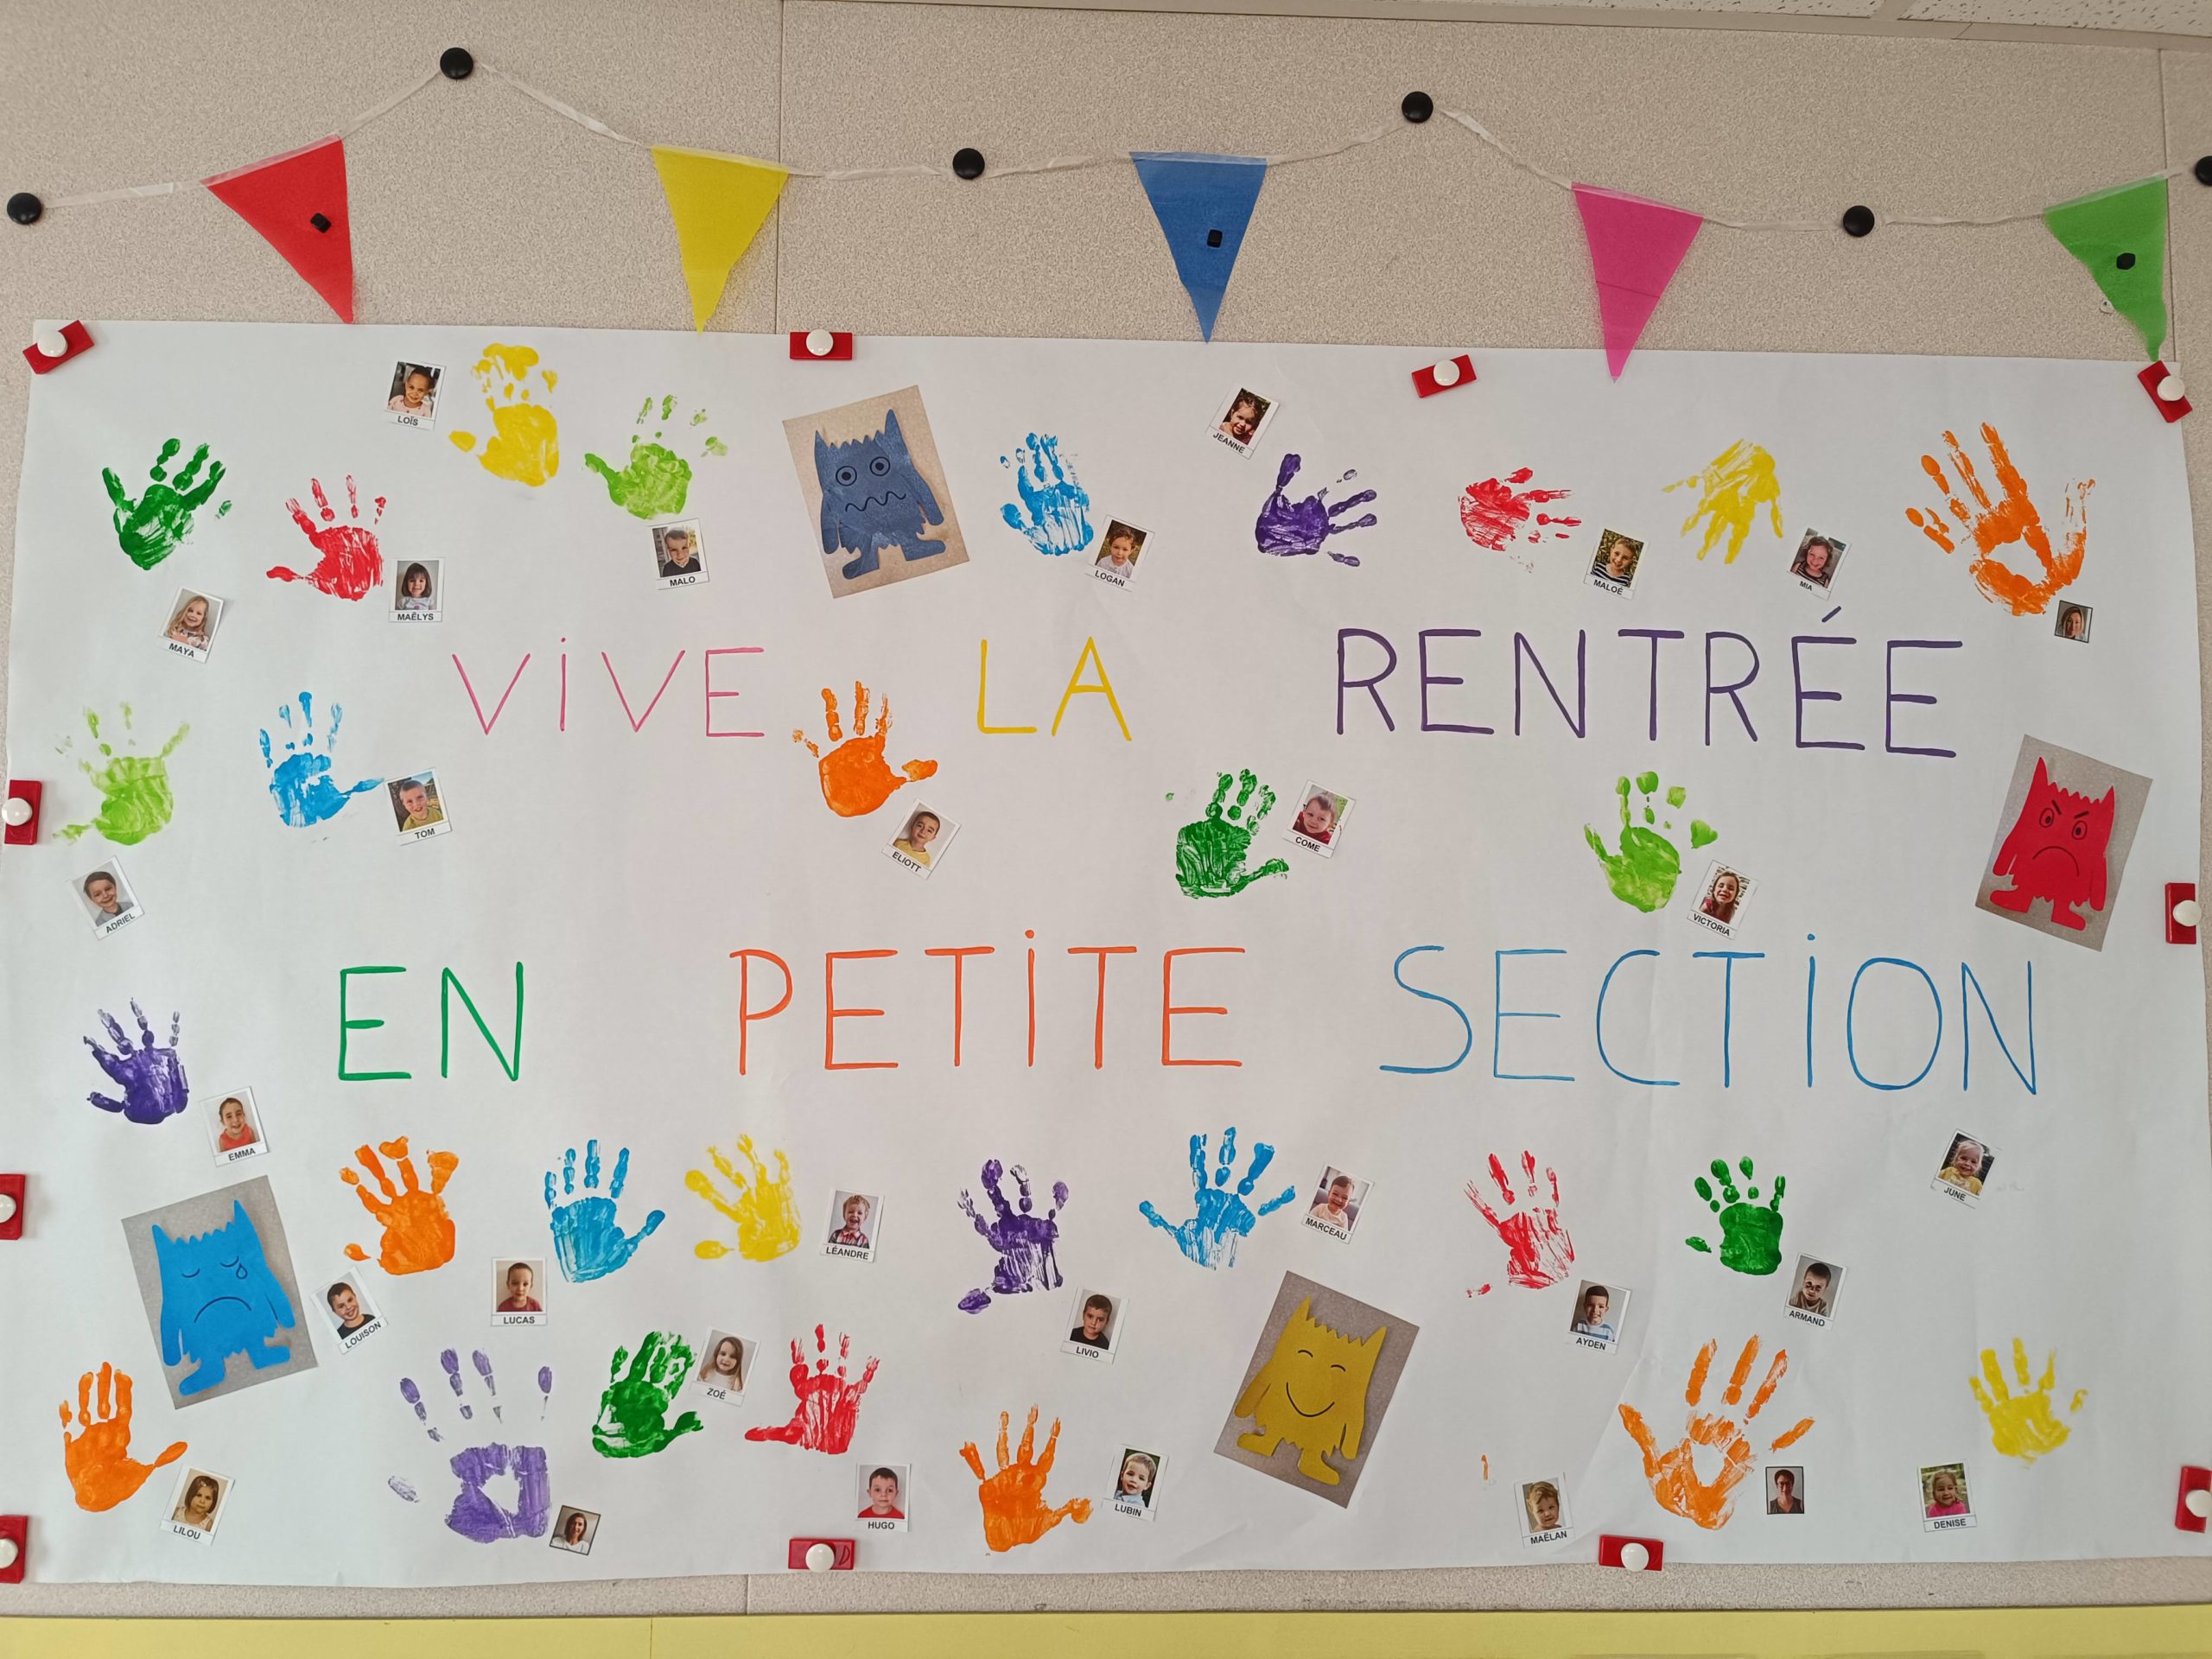 LOÏS
JEANNE
MALO
LOGAN
MALOÉ
MIA
MAËLYS
MAYA
VIVE LA RENTRÉE
TOM
ELIOTT
COME
VICTORIA
ADRIEL
EN PETITE SECTION
EMMA
JUNE
LÉANDRE
MARCEAU
LOUISON
LUCAS
LIVIO
AYDEN
ARMAND
ZOÉ
LILOU
HUGO
LUBIN
MAËLAN
DENISE